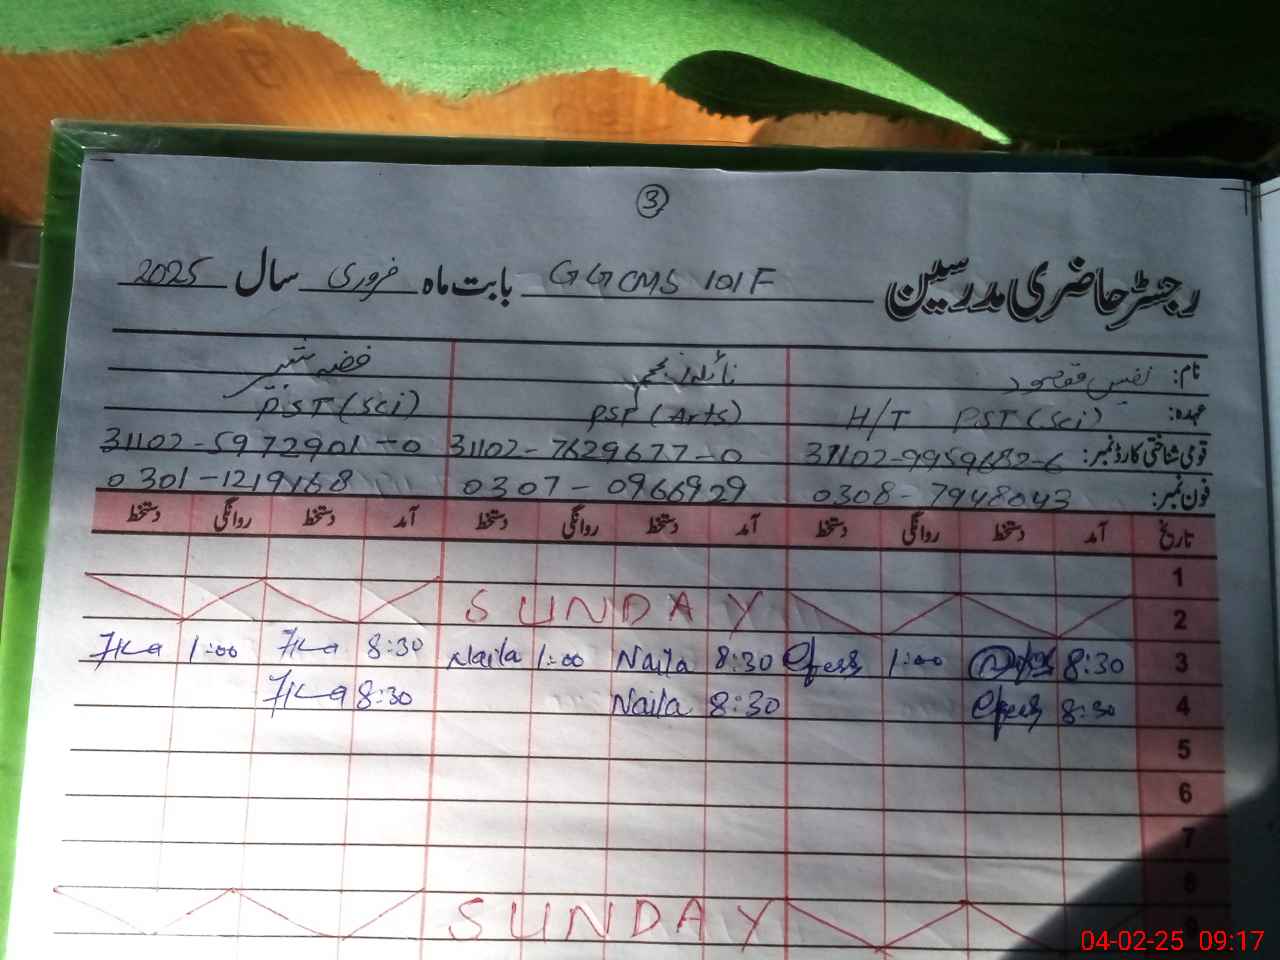 3
رجسٹر حاضری مدرسین GGCMS 101F بابت ماہ فروری سال 2025
نام: نفیس مقصود نائلہ نجم فضہ شبیر
عہدہ: H/T PST (Sci) PST (Arts) PST (Sci)
قومی شناختی کارڈ نمبر: 31102-9959682-6 31102-7629677-0 31102-5972901-0
فون نمبر: 0308-7948043 0307-0966929 0301-1219168
تاریخ آمد دستخط روانگی دستخط آمد دستخط روانگی دستخط آمد دستخط روانگی دستخط
1
2 SUNDAY
3 8:30 1:00 8:30 Naila 1:00 Naila 8:30 1:00
4 8:30 8:30 Naila 8:30
5
6
7
8
9 SUNDAY
04-02-25 09:17